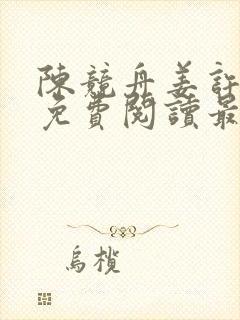 陳競舟姜訢
免費閱讀最
烏欖